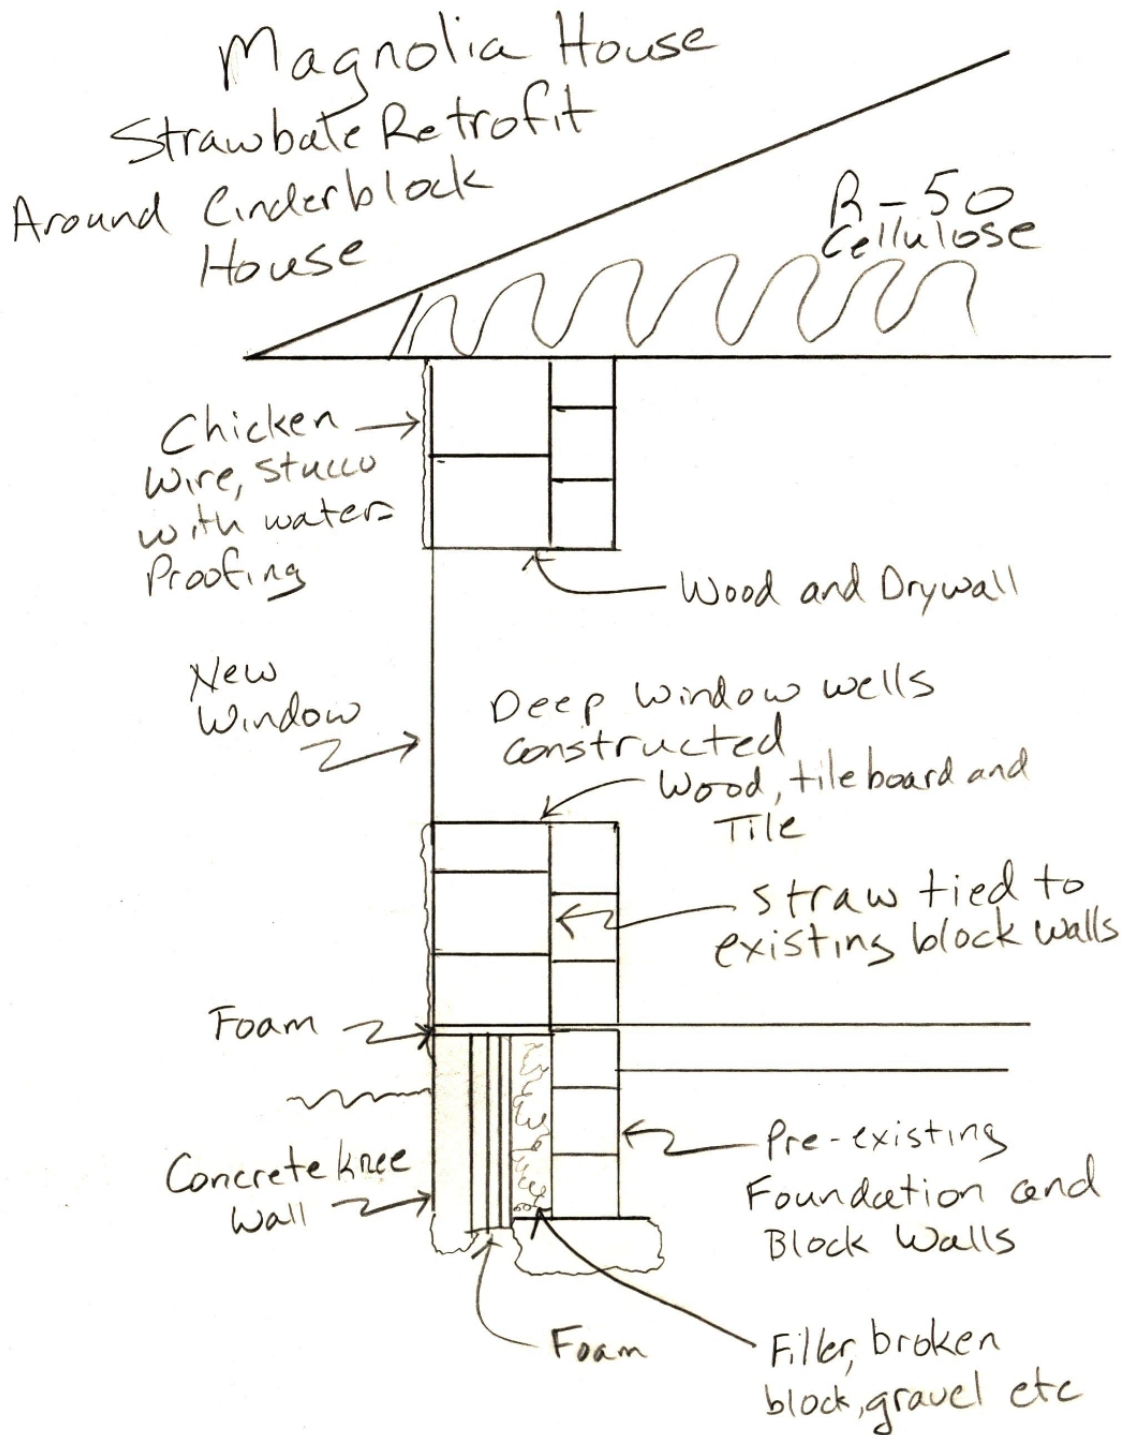 Magnolia House
Strawbale Retrofit
Around Cinderblock
House
R-50
Cellulose
Chicken
Wire, stucco
with water=
Proofing
Wood and Drywall
New
Window
Deep Window wells
constructed
Wood, tileboard and
Tile
Straw tied to
existing block walls
Foam
Concrete knee
Wall
Pre-existing
Foundation and
Block Walls
Foam
Filler, broken
block, gravel etc